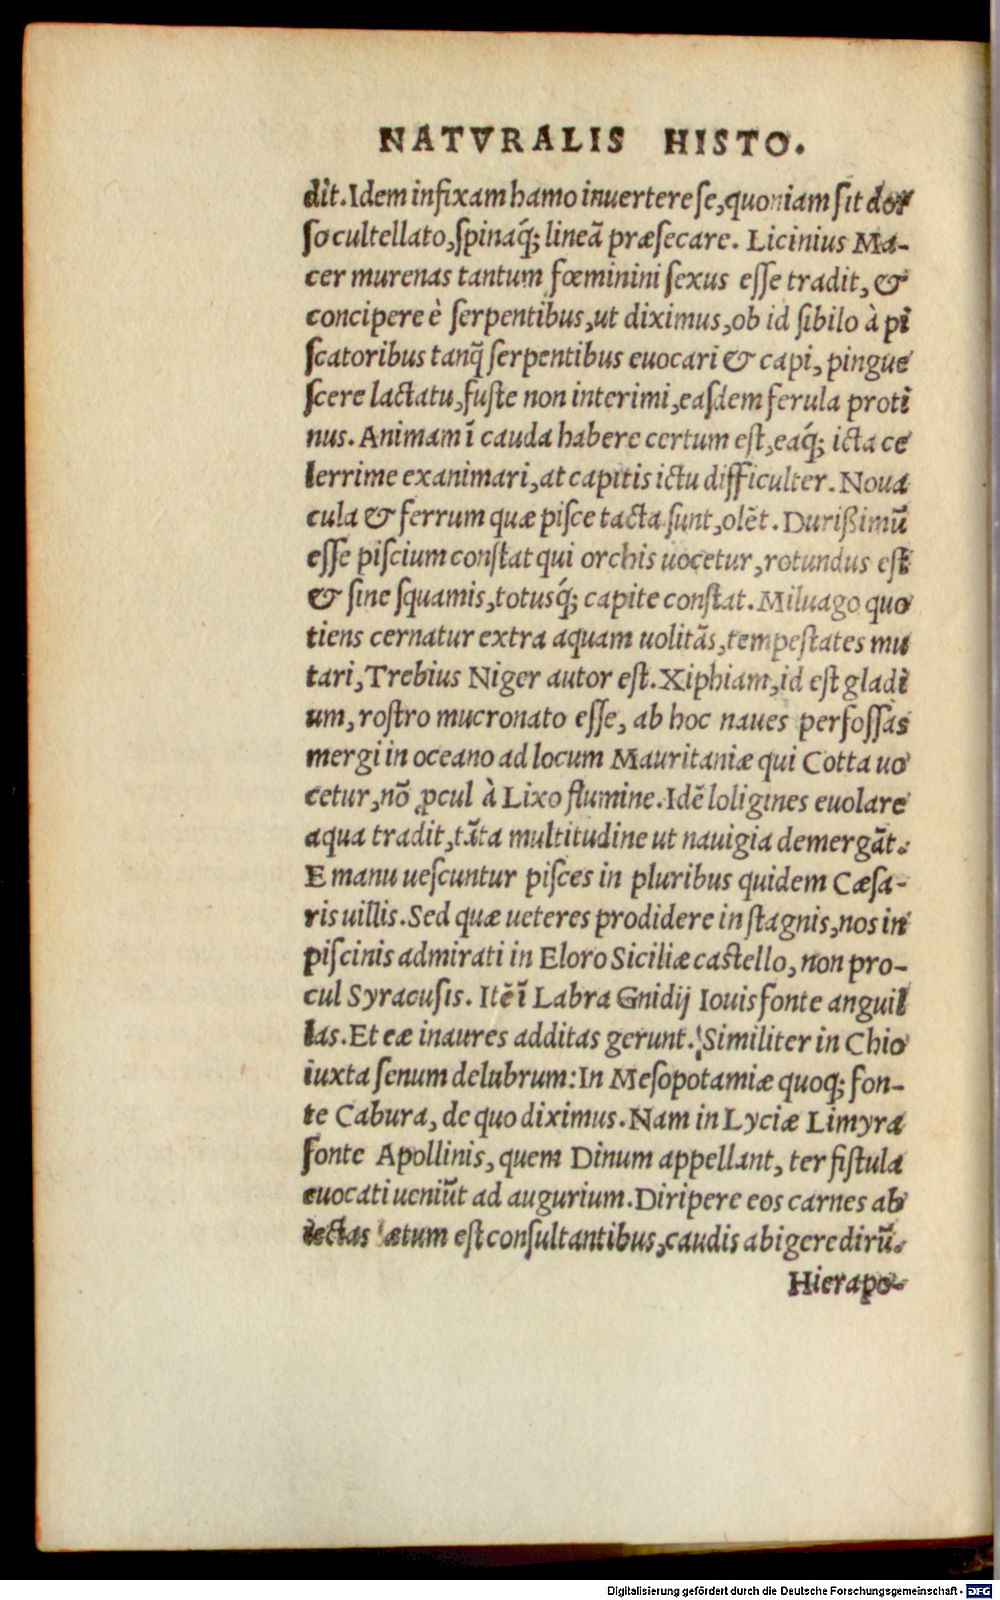 NATVRALIS HISTO.
dit. Idem infixam hamo inuertere se, quoniam sit dor
so cultellato, spinaq́; lineā præsecare. Licinius Ma-
cer murenas tantum fœminini sexus esse tradit, &
concipere è serpentibus, ut diximus, ob id sibilo à pi
scatoribus tanq̃ serpentibus euocari & capi, pingue
scere lactatu, fuste non interimi, easdem ferula proti
nus. Animam ī cauda habere certum est, eaq́; icta ce
lerrime exanimari, at capitis ictu difficulter. Noua
cula & ferrum quæ pisce tacta sunt, olēt. Durißimū
esse piscium constat qui orchis uocetur, rotundus est
& sine squamis, totusq́; capite constat. Miluago quo
tiens cernatur extra aquam uolitās, tempestates mu
tari, Trebius Niger autor est. Xiphiam, id est gladi
um, rostro mucronato esse, ab hoc naues perfossas
mergi in oceano ad locum Mauritaniæ qui Cotta uo
cetur, nō ꝓcul à Lixo flumine. Idē loligines euolare
aqua tradit, tāta multitudine ut nauigia demergāt.
E manu uescuntur pisces in pluribus quidem Cæsa-
ris uillis. Sed quæ ueteres prodidere in stagnis, nos in
piscinis admirati in Eloro Siciliæ castello, non pro-
cul Syracusis. Itē ī Labra Gnidij Iouis fonte anguil
las. Et eæ inaures additas gerunt. Similiter in Chio
iuxta senum delubrum: In Mesopotamiæ quoq; fon-
te Cabura, de quo diximus. Nam in Lyciæ Limyra
fonte Apollinis, quem Dinum appellant, ter fistula
euocati ueniūt ad augurium. Diripere eos carnes ab
iectas lætum est consultantibus, caudis abigere dirū.
Hierapo-
Digitalisierung gefördert durch die Deutsche Forschungsgemeinschaft - DFG